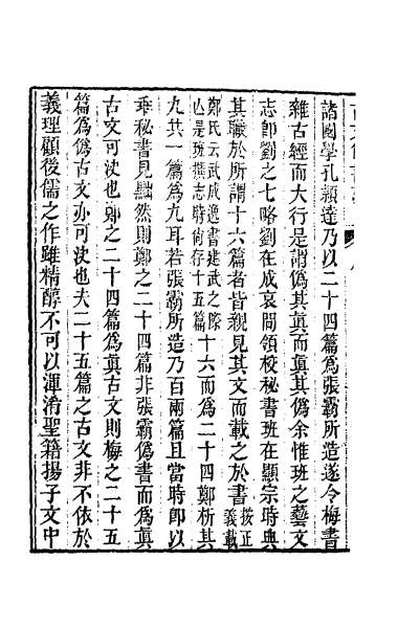 諸國學孔穎達乃以二十四篇爲張霸所造遂令梅書
雜古經而大行是謂僞其眞而眞其僞余惟班之藝文
志卽劉之七略劉在成哀間領校秘書班在顯宗時典
其職於所謂十六篇者皆親見其文而載之於書
義載
按正
鄭氏云武成逸書建武之際
亾是班撰志時尙存十五篇
十六而爲二十四鄭析其
九共一篇爲九耳若張霸所造乃百兩篇且當時卽以
乖秘書見黜然則鄭之二十四篇非張霸僞書而爲眞
古文可決也鄭之二十四篇爲眞古文則梅之二十五
篇爲僞古文亦可決也夫二十五篇之古文非不依於
義理顧後儒之作雖精醇不可以渾淆聖籍揚子文中